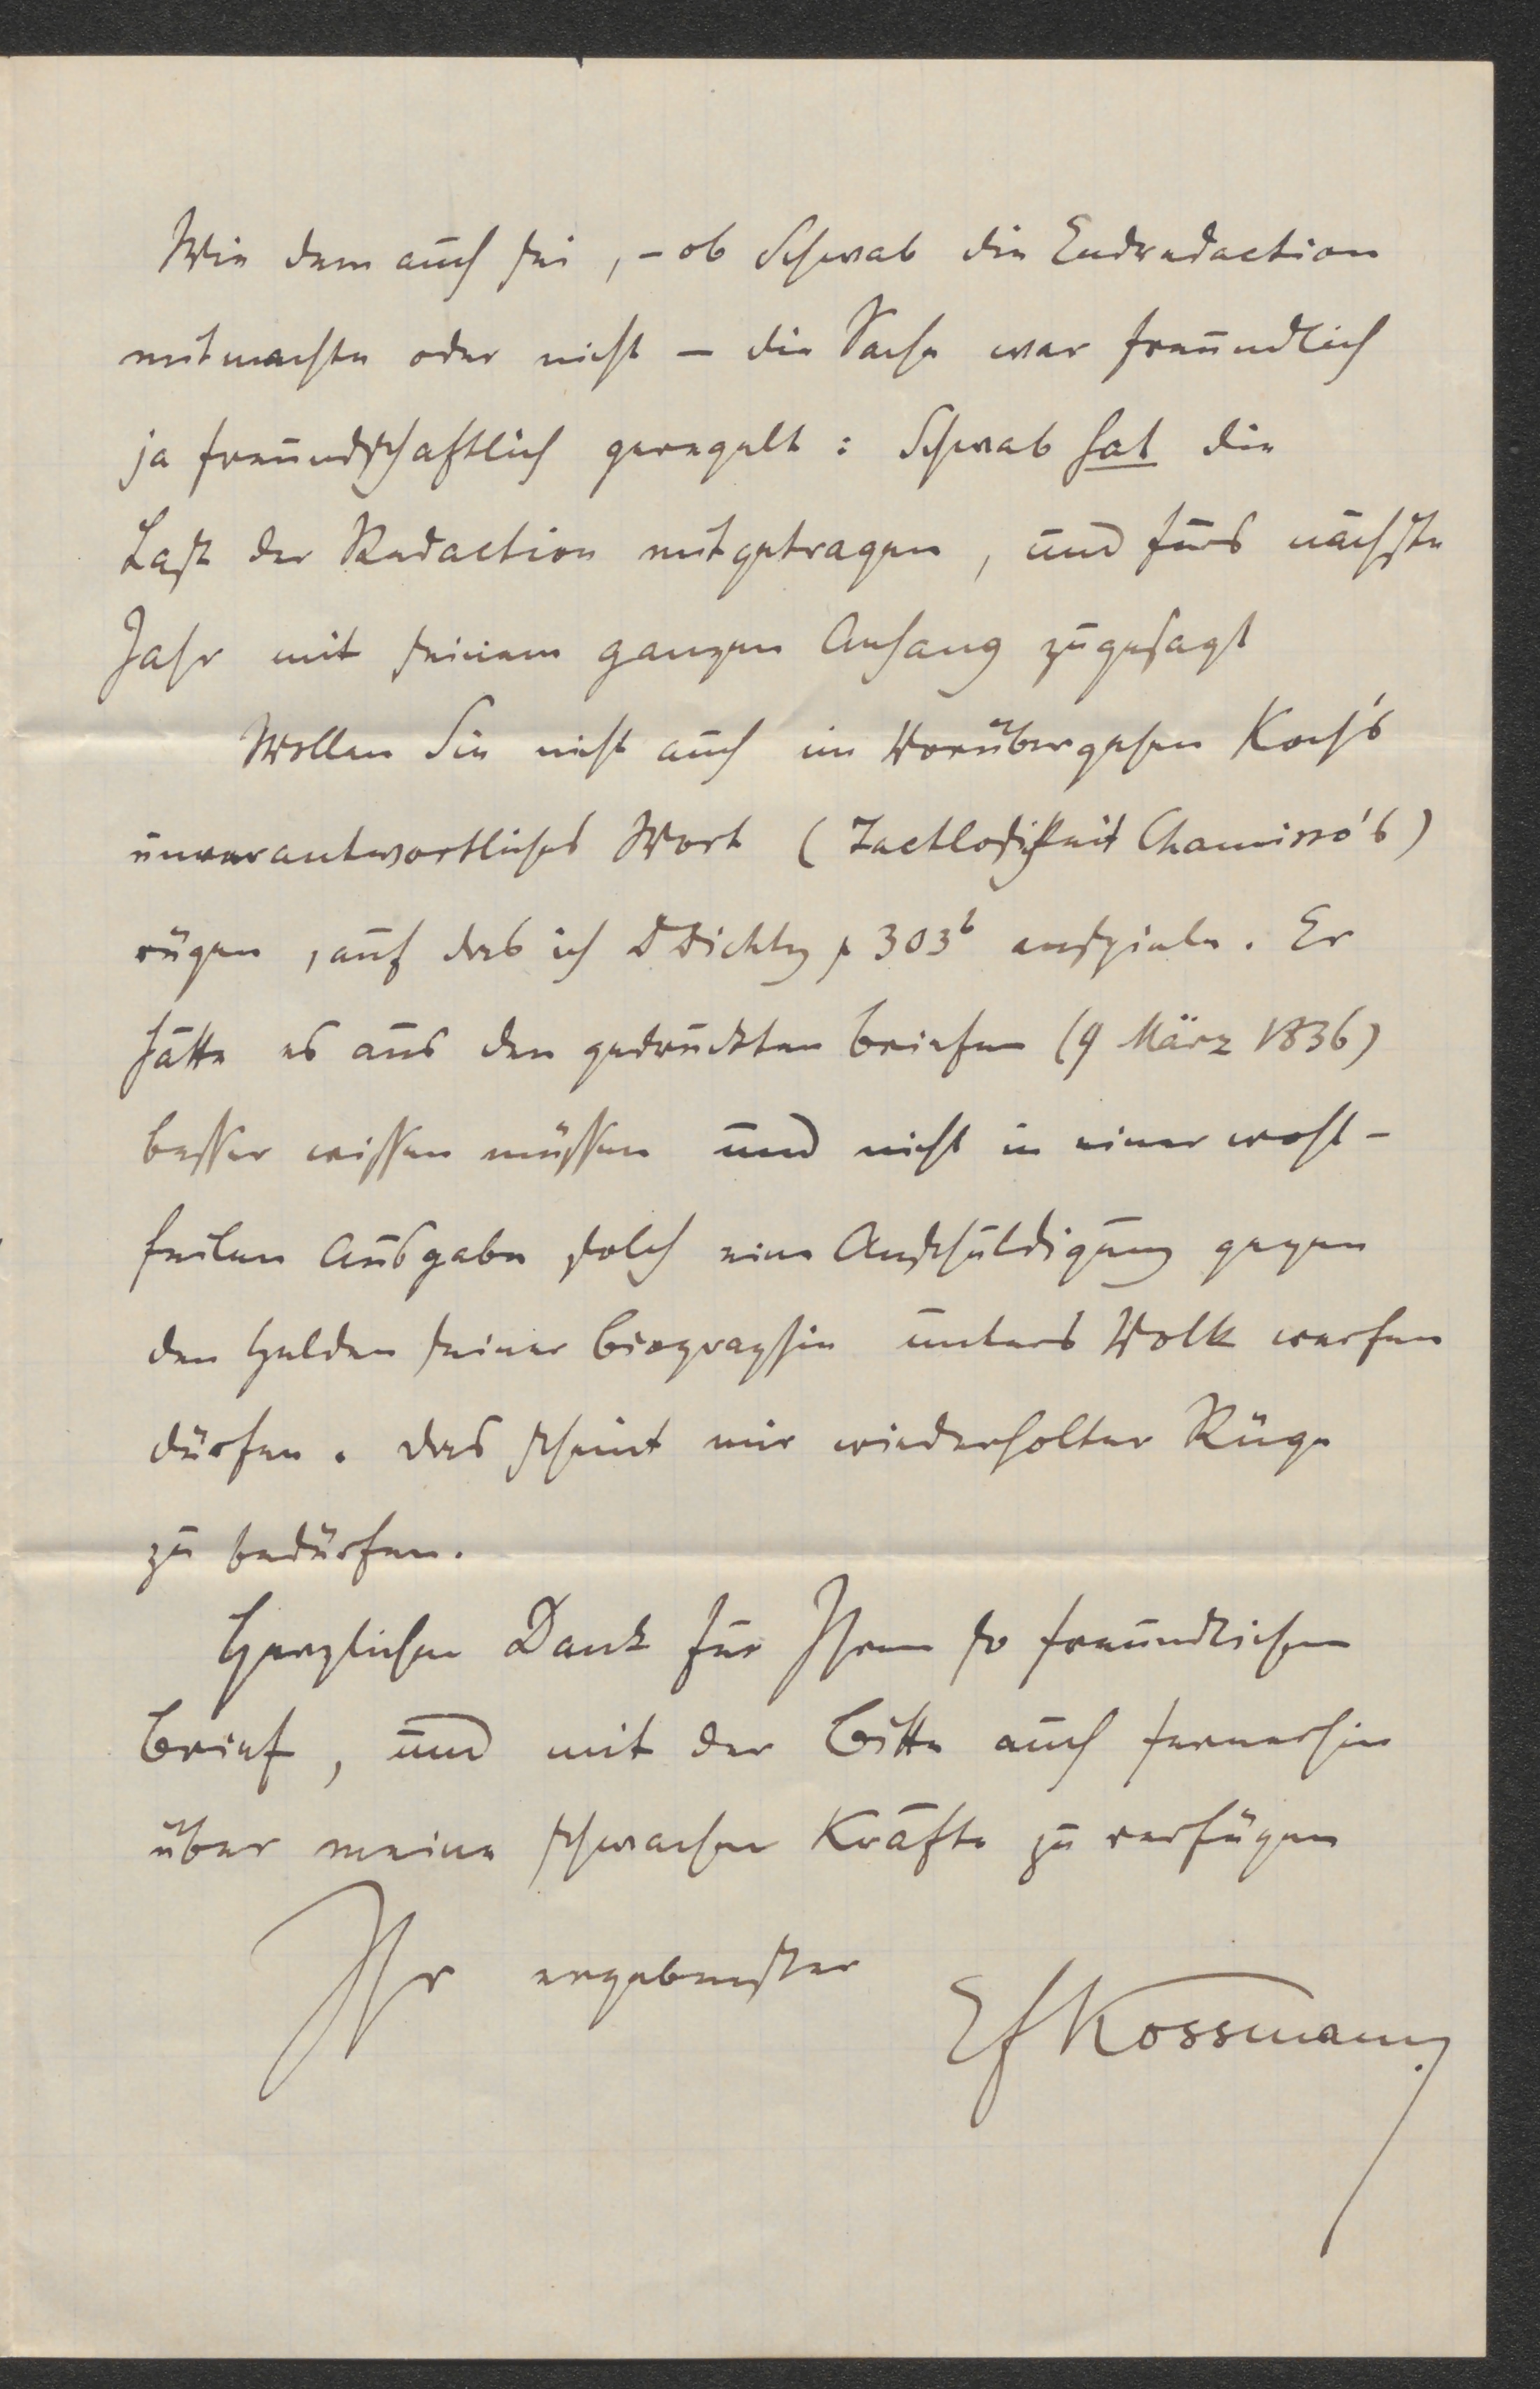 Wie dem auch sei, – ob Schwab die Endredaction
mitmachte oder nicht – die Sache war freundlich
ja freundschaftlich geregelt: Schwab hat die
Last der Redaction mitgetragen, und fürs nächste
Jahr mit seinem ganzen Anhang zugesagt
Wollen Sie nicht auch im Vorübergehen Koch's
unverantwortliches Wort (Tactlosigkeit Chamisso's)
rügen, auf das ich DDichtg p 303b anspiele. Er
hätte es aus den gedruckten Briefen (9 März 1836)
besser wissen müssen und nicht in einer wohl-
feilen Ausgabe solch eine Anschuldigung gegen
den Helden seiner Biographie unters Volk werfen
dürfen. Das scheint mir wiederholter Rüge
zu bedürfen.
Herzlichen Dank für Ihren so freundlichen
Brief, und mit der Bitte auch fernerhin
über meine schwachen Kräfte zu verfügen
Ihr ergebenster
EfKossmann